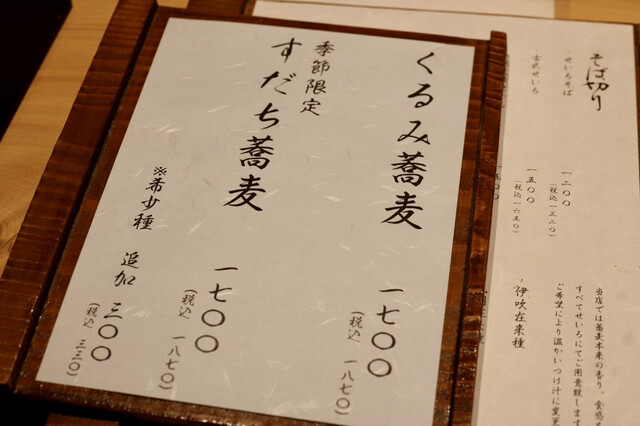 くるみ蕎麦 一七〇〇
(税込 一八七〇)
季節限定
すだち蕎麦 一七〇〇
(税込 一八七〇)
※希少種 追加 三〇〇
(税込 三三〇)
そば切り
せいろそば 一二〇〇
(税込一三二〇)
玄式せいろ 一五〇〇
(税込一六五〇)
伊吹在来種
当店では蕎麦本来の香り、食感
すべてせいろにてご用意致します
ご希望により温かいつけ汁に変更